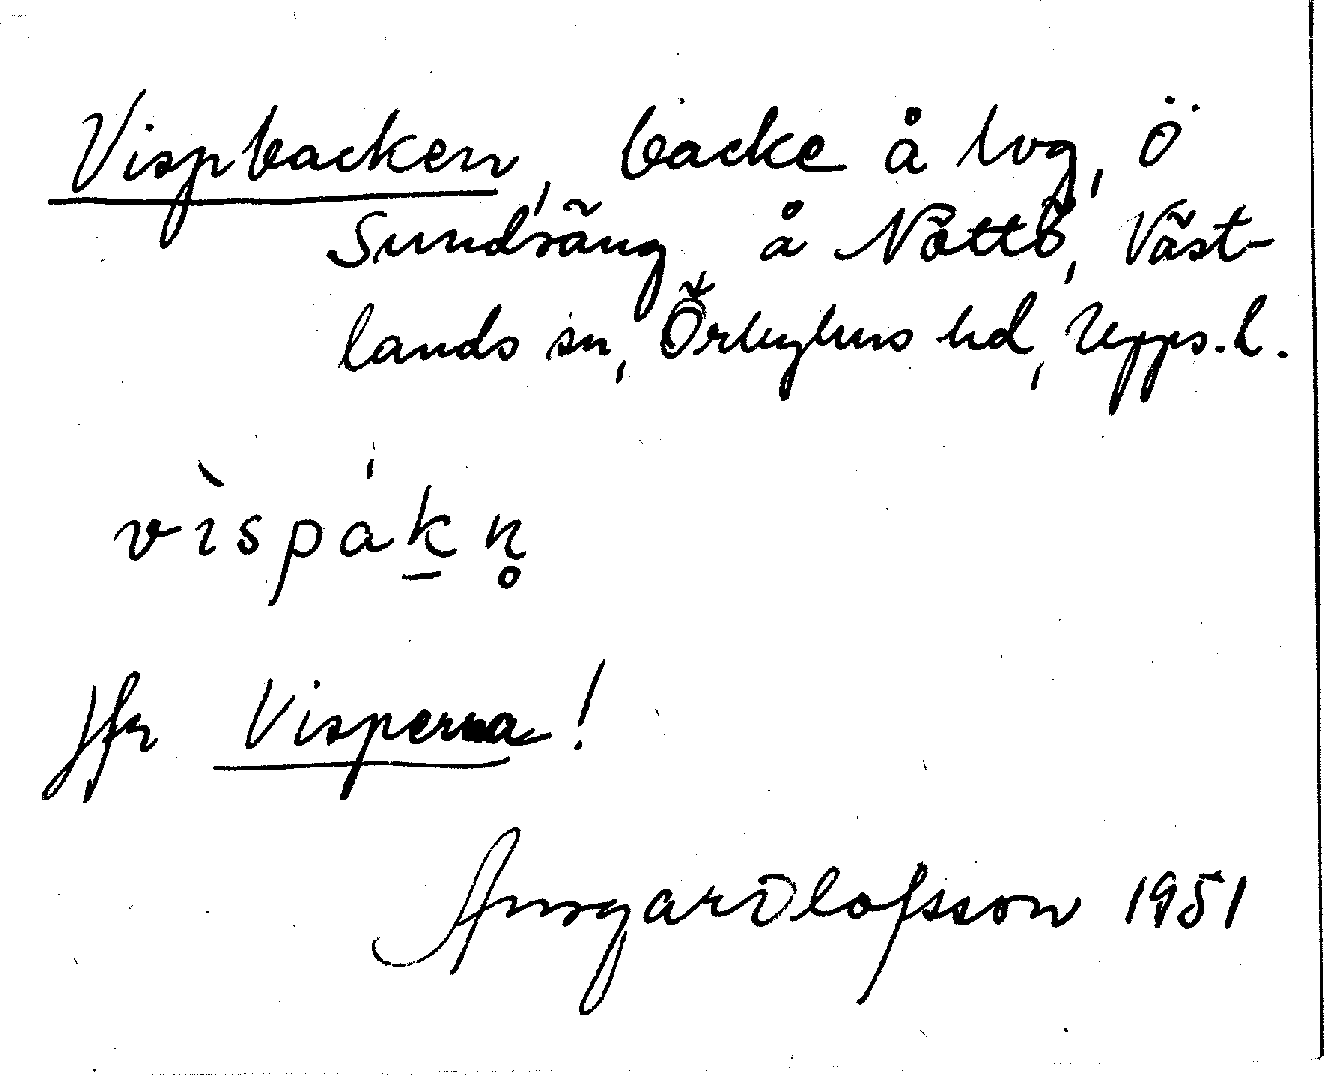 Vispbacken, backe å lvg, ö
Sundsäng å Nöttö, Väst-
lands sn, Örbyhus hd, Upps. l.
vìspákn̥
Jfr Visperna!
Ansgar Olofsson 1951